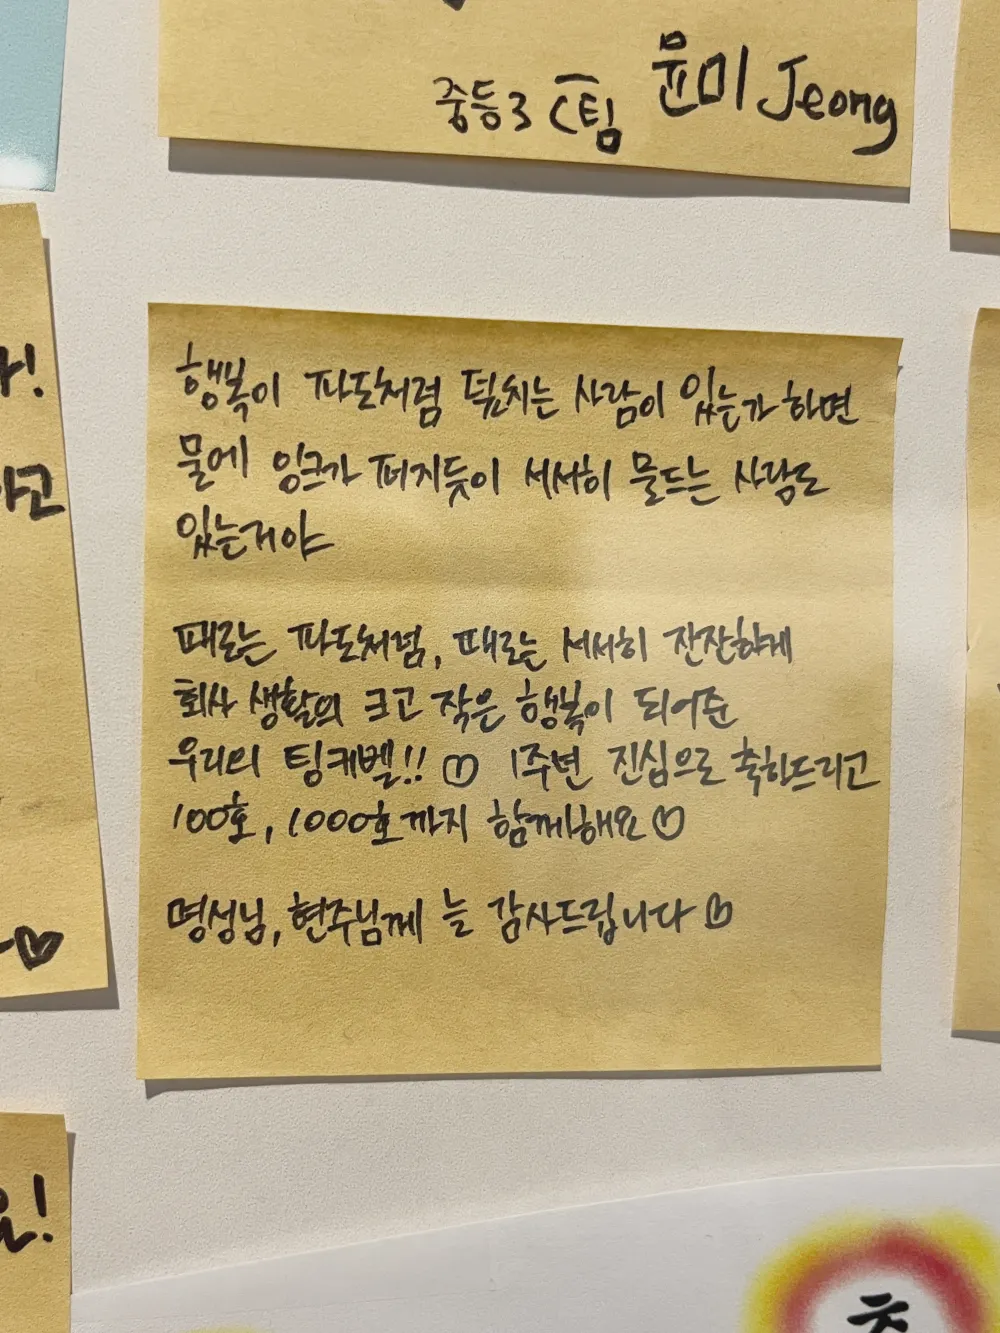 중등3 C팀 윤미 Jeong
행복이 파도처럼 덮치는 사람이 있는가 하면
물에 잉크가 퍼지듯이 서서히 물드는 사람도
있는거야
때로는 파도처럼, 때로는 서서히 잔잔하게
회사 생활의 크고 작은 행복이 되어준
우리의 팅커벨!! ♡ 1주년 진심으로 축하드리고
100호, 1000호까지 함께해요 ♡
명성님, 현주님께 늘 감사드립니다 ♡